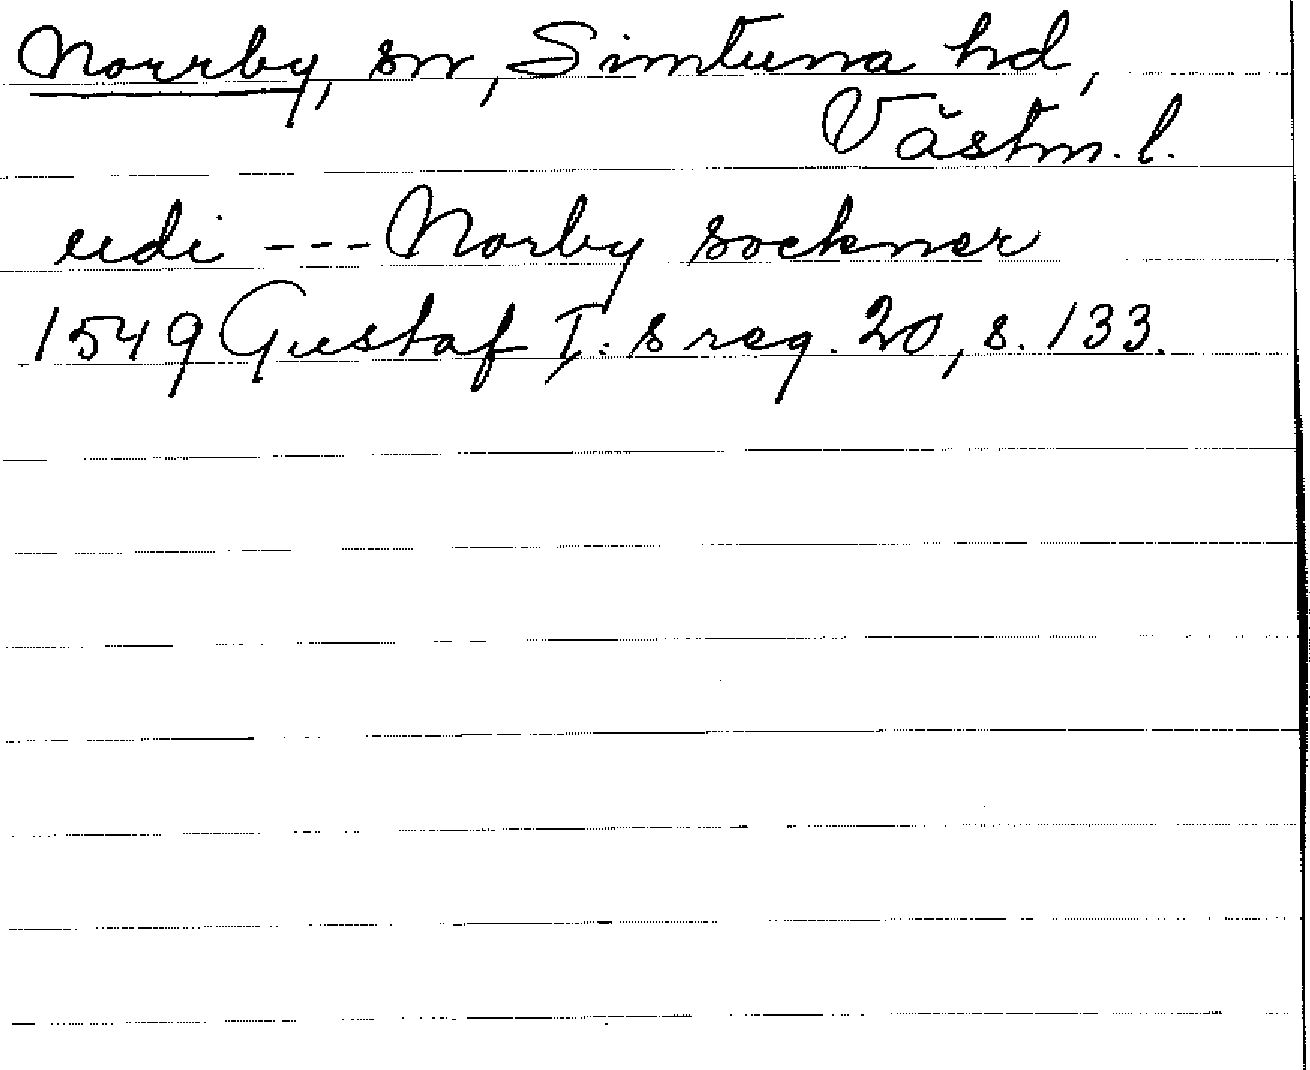 Norrby, sn, Simtuna hd,
Västm. l.
udi --- Norby sockner
1549 Gustaf I:s reg. 20, s. 133.